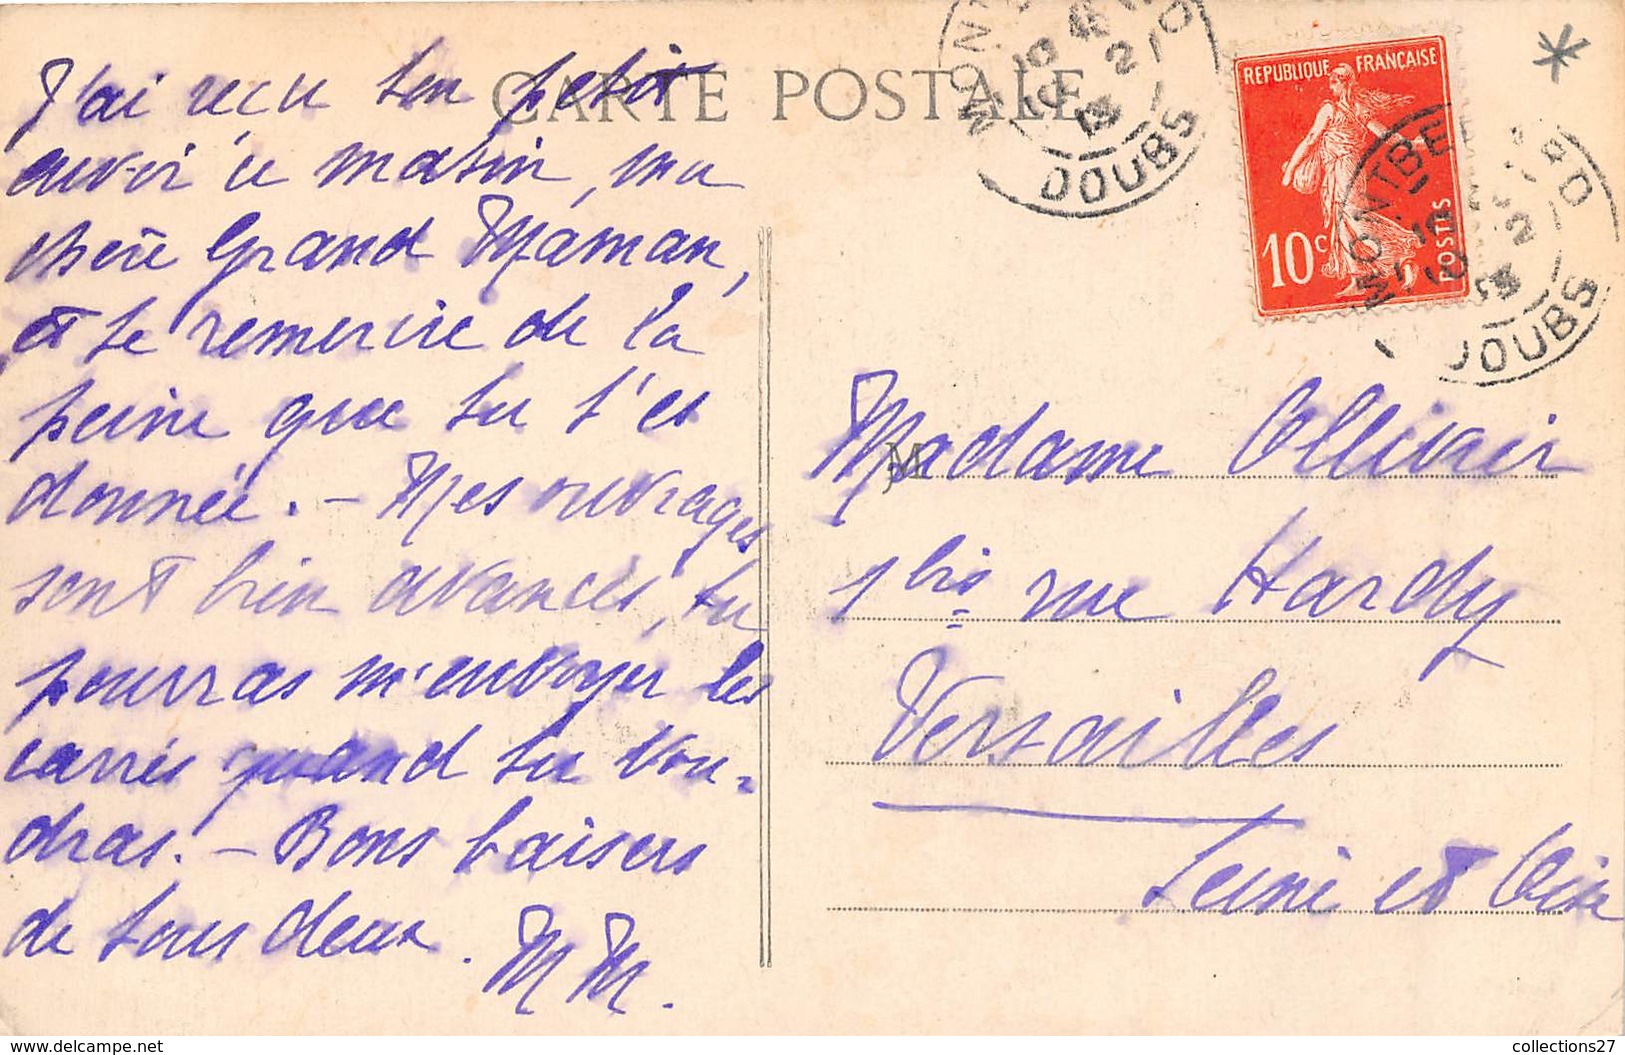 CARTE POSTALE
J'ai reçu ton petit
envoi ce matin, ma
chère Grand Maman,
et te remercie de la
peine que tu t'es
donnée. - Mes ouvrages
sont bien avancés, tu
pourras m'envoyer les
carrés quand tu vou-
dras. - Bons baisers
de tous deux.
M M.
DOUBS
RÉPUBLIQUE FRANÇAISE
10c
POSTES
DOUBS
M
Madame Ollivier
1 bis rue Hardy
Versailles
Seine et Oise
collections27